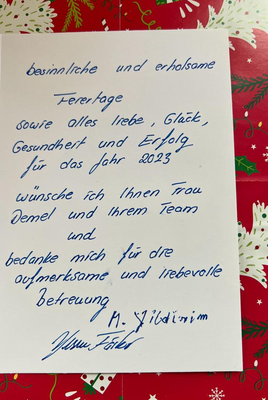 besinnliche und erholsame
Feiertage
sowie alles liebe, Glück,
Gesundheit und Erfolg
für das Jahr 2023
wünsche ich Ihnen Frau
Demel und Ihrem Team
und
bedanke mich für die
aufmerksame und liebevolle
Betreuung
M. Yildirim